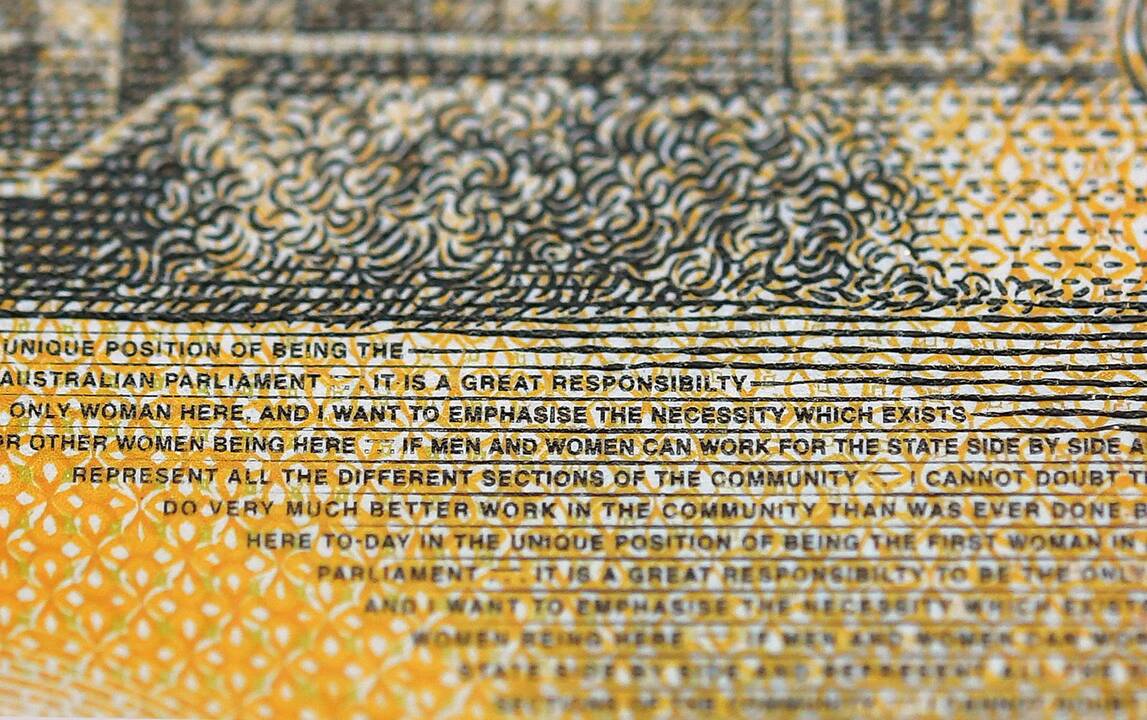 UNIQUE POSITION OF BEING THE
AUSTRALIAN PARLIAMENT ... . IT IS A GREAT RESPONSIBILTY
ONLY WOMAN HERE, AND I WANT TO EMPHASISE THE NECESSITY WHICH EXISTS
OTHER WOMEN BEING HERE ... . IF MEN AND WOMEN CAN WORK FOR THE STATE SIDE BY SIDE
REPRESENT ALL THE DIFFERENT SECTIONS OF THE COMMUNITY — I CANNOT DOUBT
DO VERY MUCH BETTER WORK IN THE COMMUNITY THAN WAS EVER DONE.
HERE TO-DAY IN THE UNIQUE POSITION OF BEING THE FIRST WOMAN IN
PARLIAMENT ... . IT IS A GREAT RESPONSIBILTY TO BE THE ONLY
AND I WANT TO EMPHASISE THE NECESSITY WHICH EXISTS
WOMEN BEING HERE ... . IF MEN AND WOMEN CAN
STATE SIDE BY SIDE AND REPRESENT ALL
SECTIONS OF THE COMMUNITY — I CANNOT